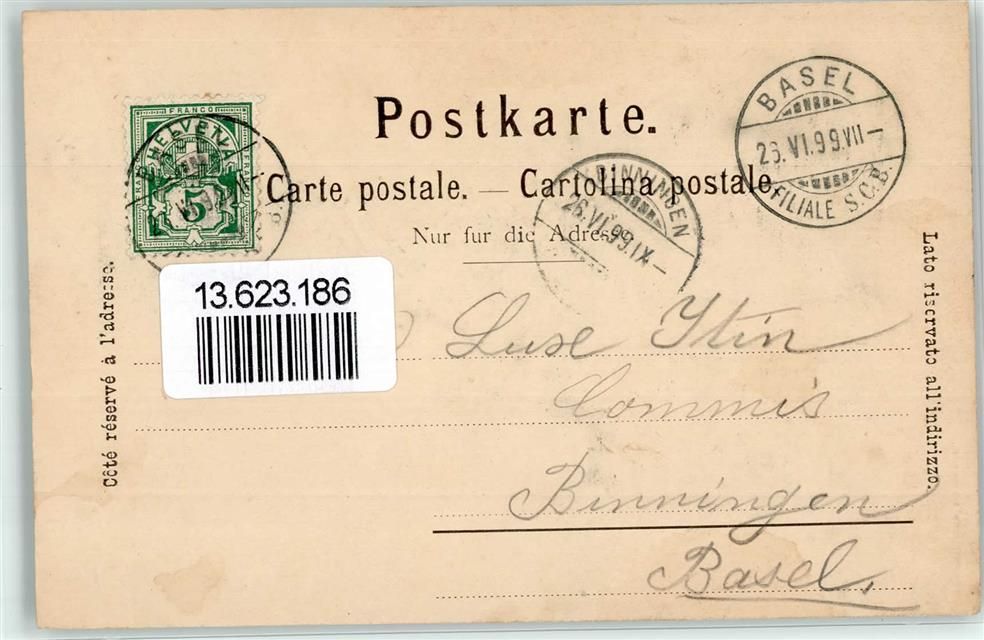 Postkarte.
Carte postale. — Cartolina postale.
Nur fur die Adresse
FRANCO
HELVETIA
5
BASEL
26.VI.99.VII—
FILIALE S.C.B.
BINNINGEN
26.VI.99.IX—
13.623.186
Côté réservé à l'adresse.
Lato riservato all'indirizzo.
Luse Itin
Commis
Binningen
Basel.